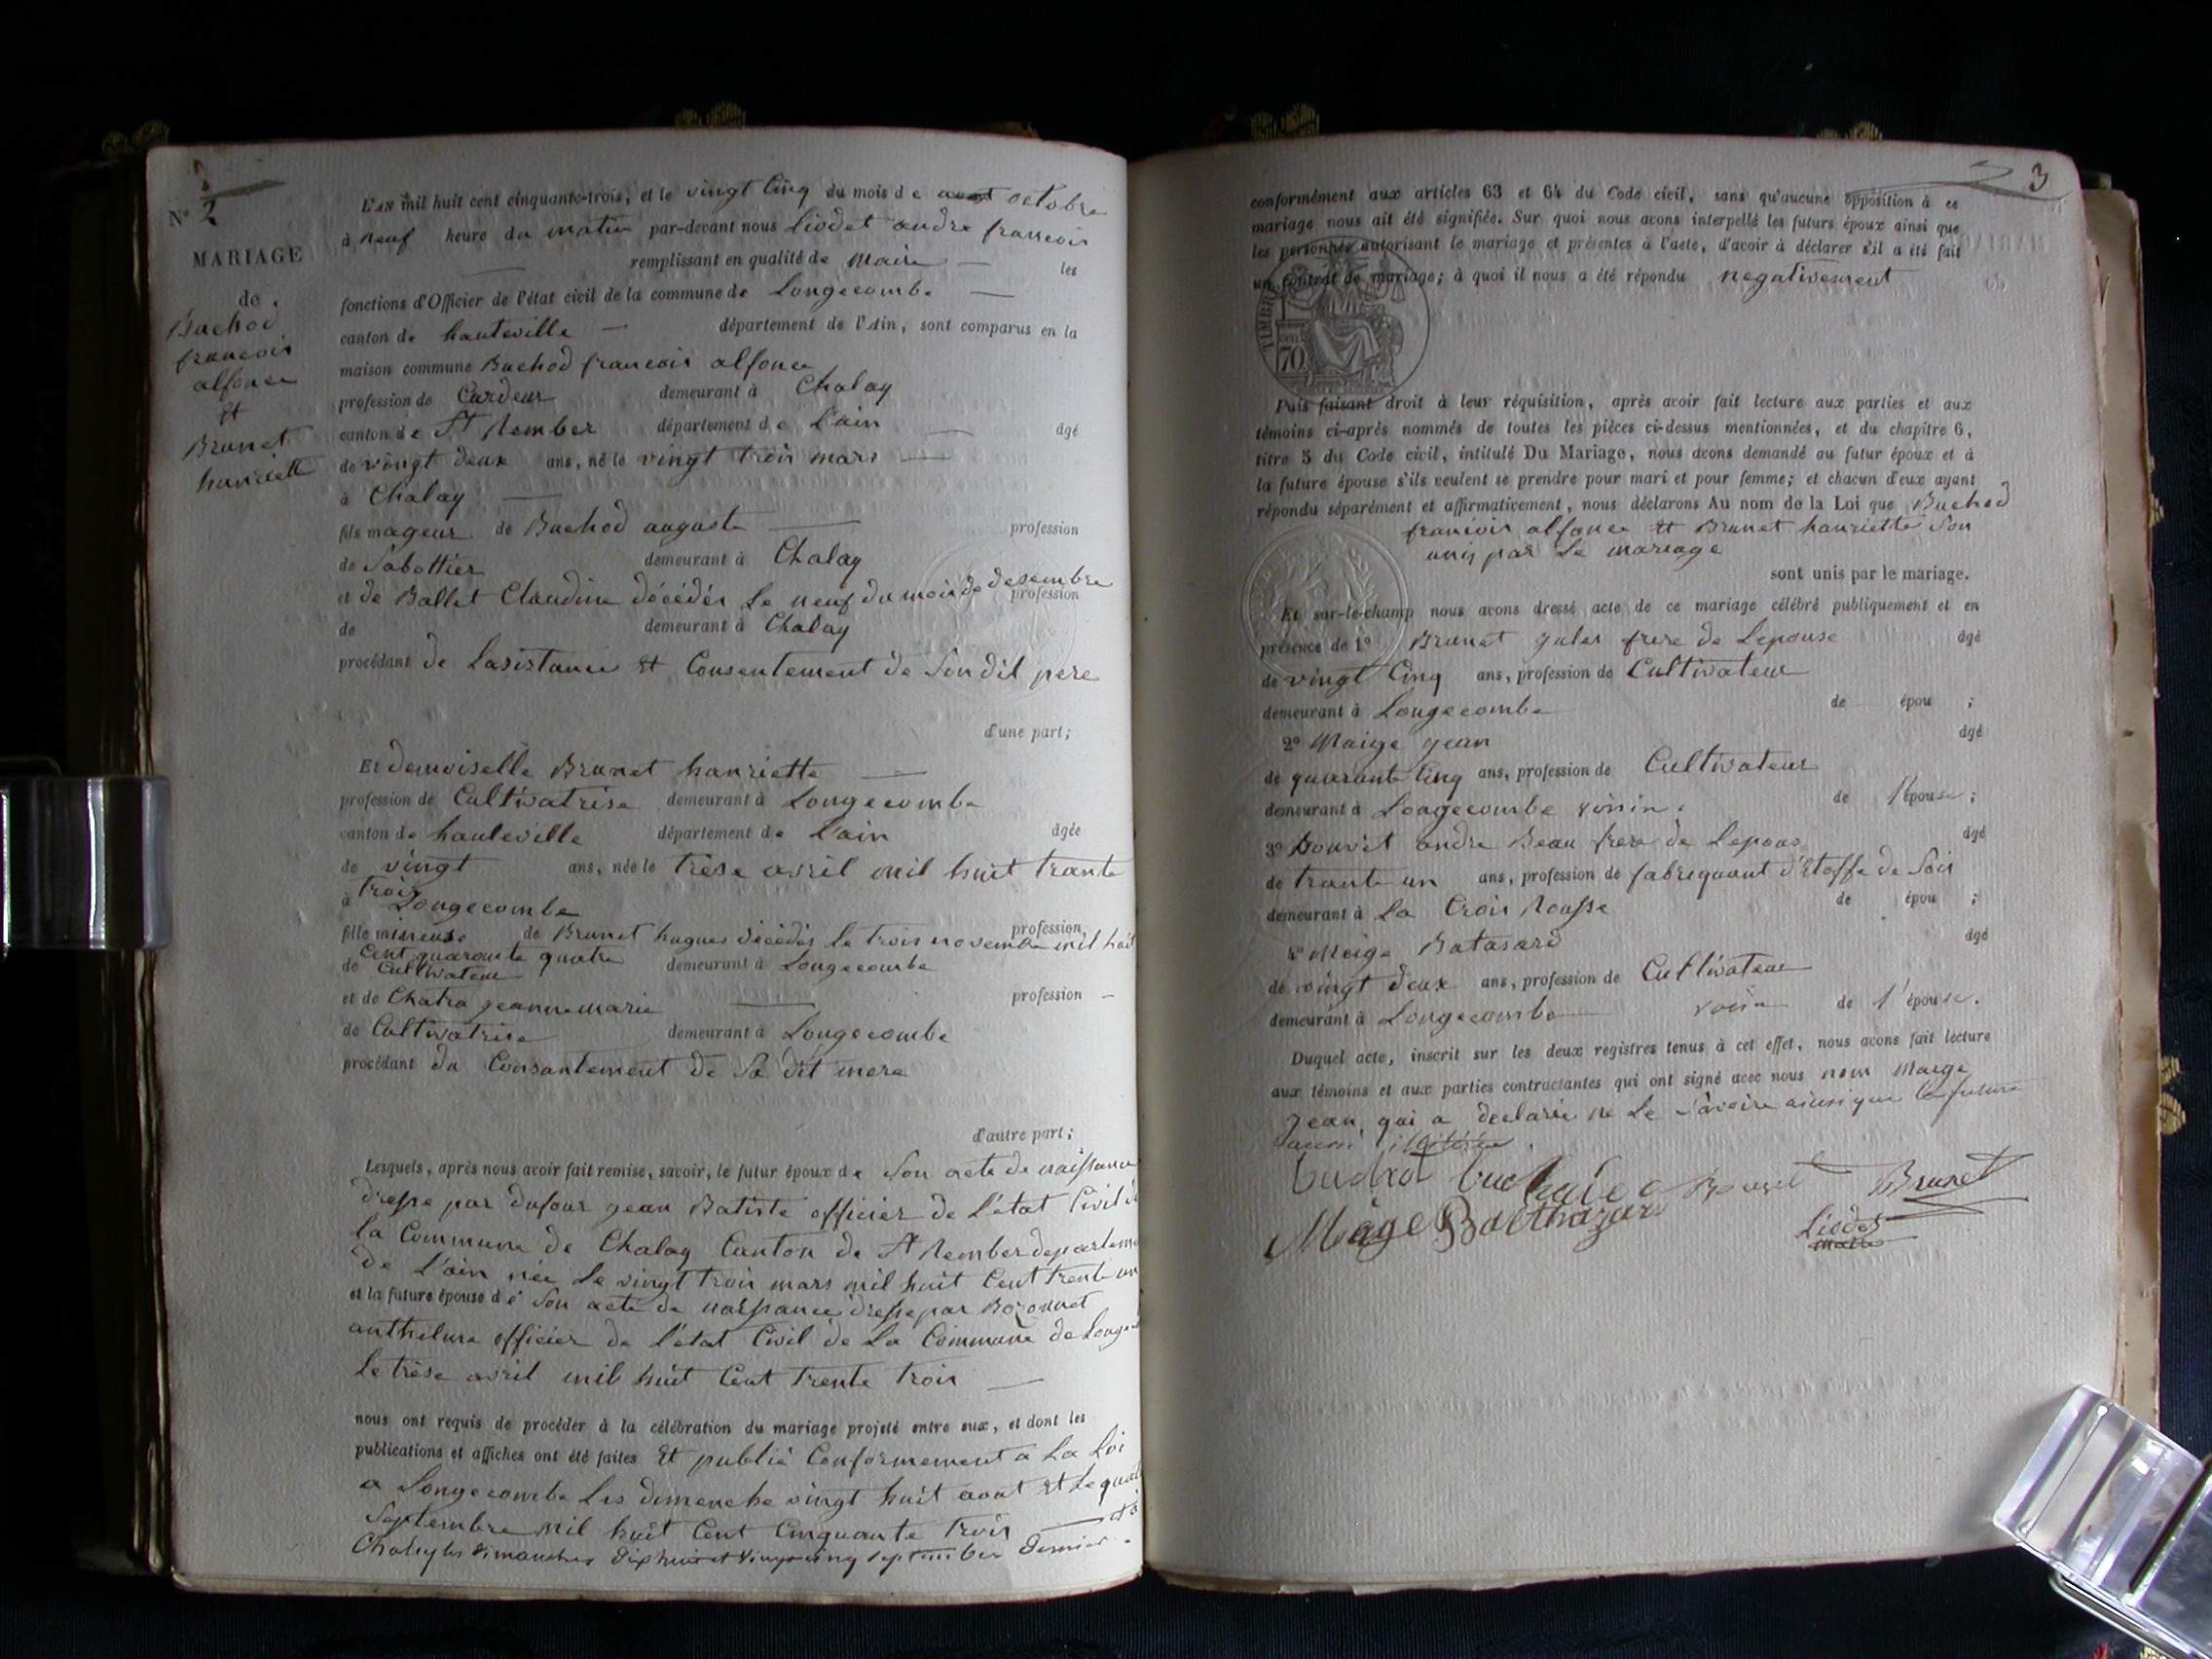 N° 2
MARIAGE
de
Buchod
francois
alfonce
et
Brunet
hanriette
L'AN mil huit cent cinquante-trois, et le vingt Cinq du mois de aout octobre
à neuf heure du matin par-devant nous Liodet andre francois
remplissant en qualité de Maire les
fonctions d'Officier de l'état civil de la commune de Longecombe
canton de hauteville département de l'Ain, sont comparus en la
maison commune Buchod francois alfonce
profession de Cardeur demeurant à Chaley
canton de St Rember département de L'ain âgé
de vingt deux ans, né le vingt trois mars
à Chaley
fils mageur de Buchod auguste profession
de Sabottier demeurant à Chaley
et de Ballet Claudine décédés le neuf du mois de desembre profession
de demeurant à Chaley
procédant de Lasistance et Consentement de Son dit pere
d'une part;
Et demoiselle Brunet hanriette
profession de Cultivatrise demeurant à Longecombe
canton de hauteville département de L'ain âgée
de vingt ans, née le trèse avril mil huit trante
trois
à Longecombe
fille mineuse de Brunet hugues décédés le trois novembre mil huit profession
Cent quarante quatre
de Cultivateur demeurant à Longecombe
et de Chatra jeanne marie profession
de Cultivatrise demeurant à Longecombe
procédant du Consantement de Sa dit mere
d'autre part;
Lesquels, après nous avoir fait remise, savoir, le futur époux de Son acte de naissance
dresse par dufour jean Batiste officier de L'état Civil de
la Commune de Chaley Canton de St Rember departeme
de L'ain née le vingt trois mars mil huit Cent trente un
et la future épouse de Son acte de naissance dresse par Bozonnet
anthelme officier de L'état Civil de La Commune de Longe
le trèse avril mil huit Cent trente trois
nous ont requis de procéder à la célébration du mariage projeté entre eux, et dont les
publications et affiches ont été faites Et publié Conformement a La Loi
a Longecombe Les dimenche vingt huit aout Et Le quat
Septembre mil huit Cent Cinquante trois et à
Chaley les dimanches dix huit et vingt cinq septembre dernier.
3
conformément aux articles 63 et 64 du Code civil, sans qu'aucune opposition à ce
mariage nous ait été signifiée. Sur quoi nous avons interpellé les futurs époux ainsi que
les personnes autorisant le mariage et présentes à l'acte, d'avoir à déclarer s'il a été fait
un contrat de mariage; à quoi il nous a été répondu negativement
TIMBRE
70
Puis faisant droit à leur réquisition, après avoir fait lecture aux parties et aux
témoins ci-après nommés de toutes les pièces ci-dessus mentionnées, et du chapitre 6,
titre 5 du Code civil, intitulé Du Mariage, nous avons demandé au futur époux et à
la future épouse s'ils veulent se prendre pour mari et pour femme; et chacun d'eux ayant
répondu séparément et affirmativement, nous déclarons Au nom de la Loi que Buchod
francois alfonce et Brunet hanriette Son
unis par Le mariage
sont unis par le mariage.
Et sur-le-champ nous avons dressé acte de ce mariage célébré publiquement et en
présence de 1° Brunet jules frere de Lepouse âgé
de vingt Cinq ans, profession de Cultivateur
demeurant à Longecombe de épou ;
2° Maige jean âgé
de quarante Cinq ans, profession de Cultivateur
demeurant à Longecombe voisin de l'épouse ;
3° Bouvet andre Beau frere de Lepous âgé
de trante un ans, profession de fabriquant d'Etoffe de Soir
demeurant à La Crois Rousse de épou ;
4° Meige Batasard âgé
de vingt deux ans, profession de Cultivateur
demeurant à Longecombe voisin de l'épouse.
Duquel acte, inscrit sur les deux registres tenus à cet effet, nous avons fait lecture
aux témoins et aux parties contractantes qui ont signé avec nous non Maige
jean, qui a declarée ne Le Savoire ainsi que la future
Brunet
Mage Balthazar
Liodet
maire